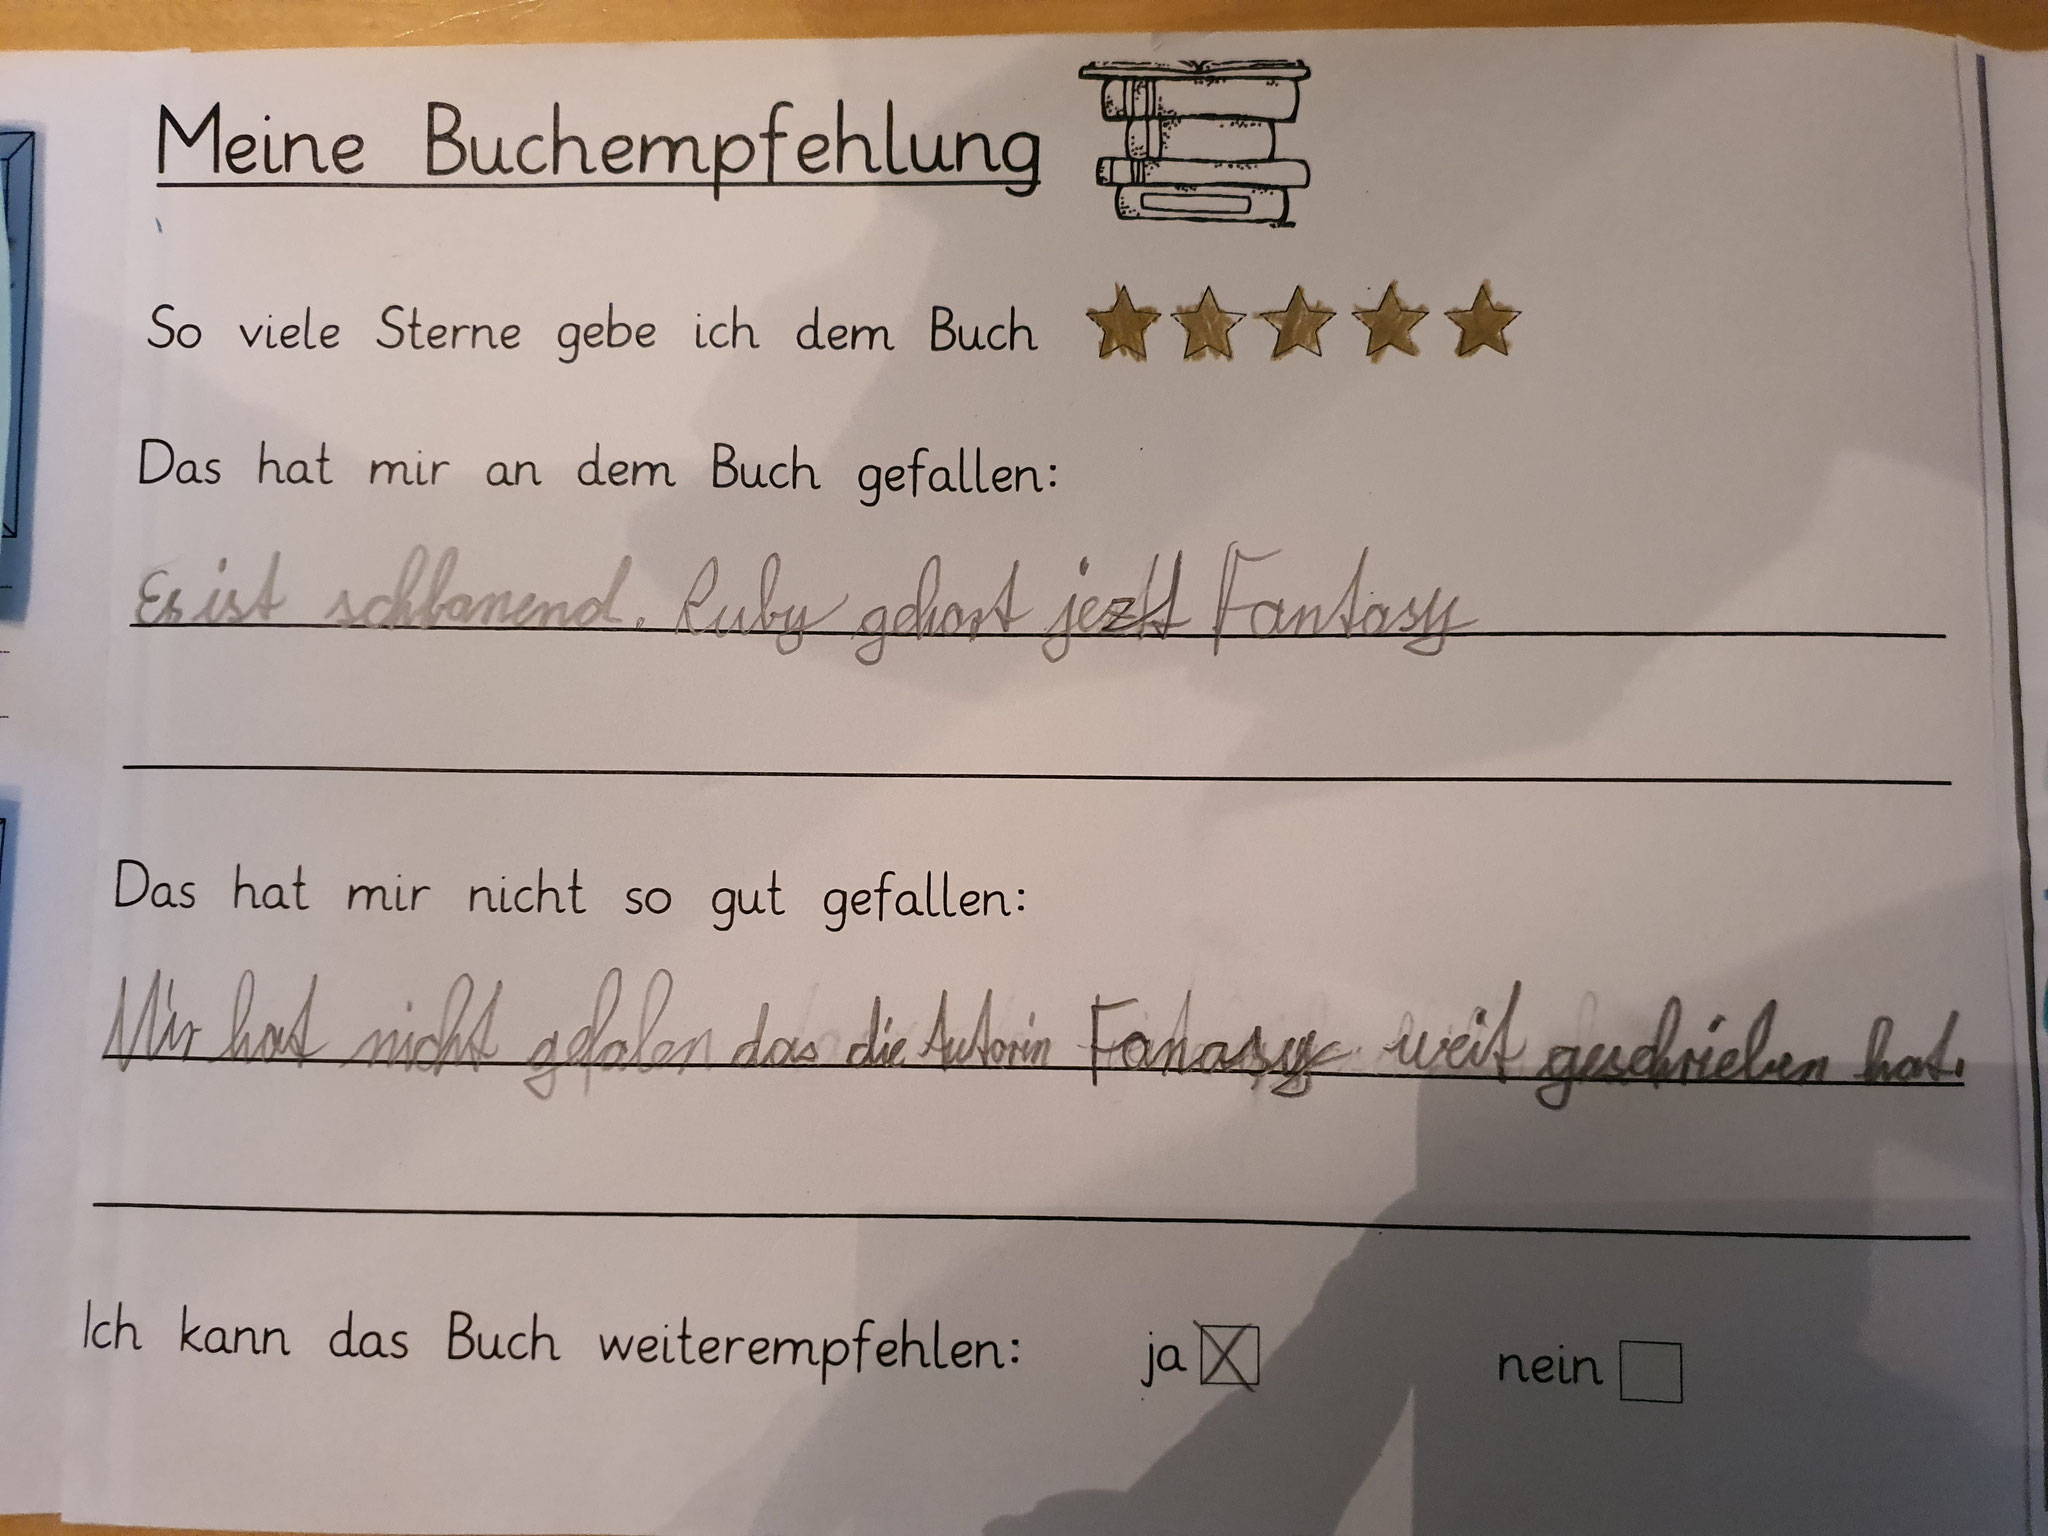 Meine Buchempfehlung
So viele Sterne gebe ich dem Buch
Das hat mir an dem Buch gefallen:
Es ist schbanend. Ruby gehort jezt Fantasy
Das hat mir nicht so gut gefallen:
Mir hat nicht gefalen das die Autorin Fanasy weit geschrieben hat.
Ich kann das Buch weiterempfehlen: ja X nein